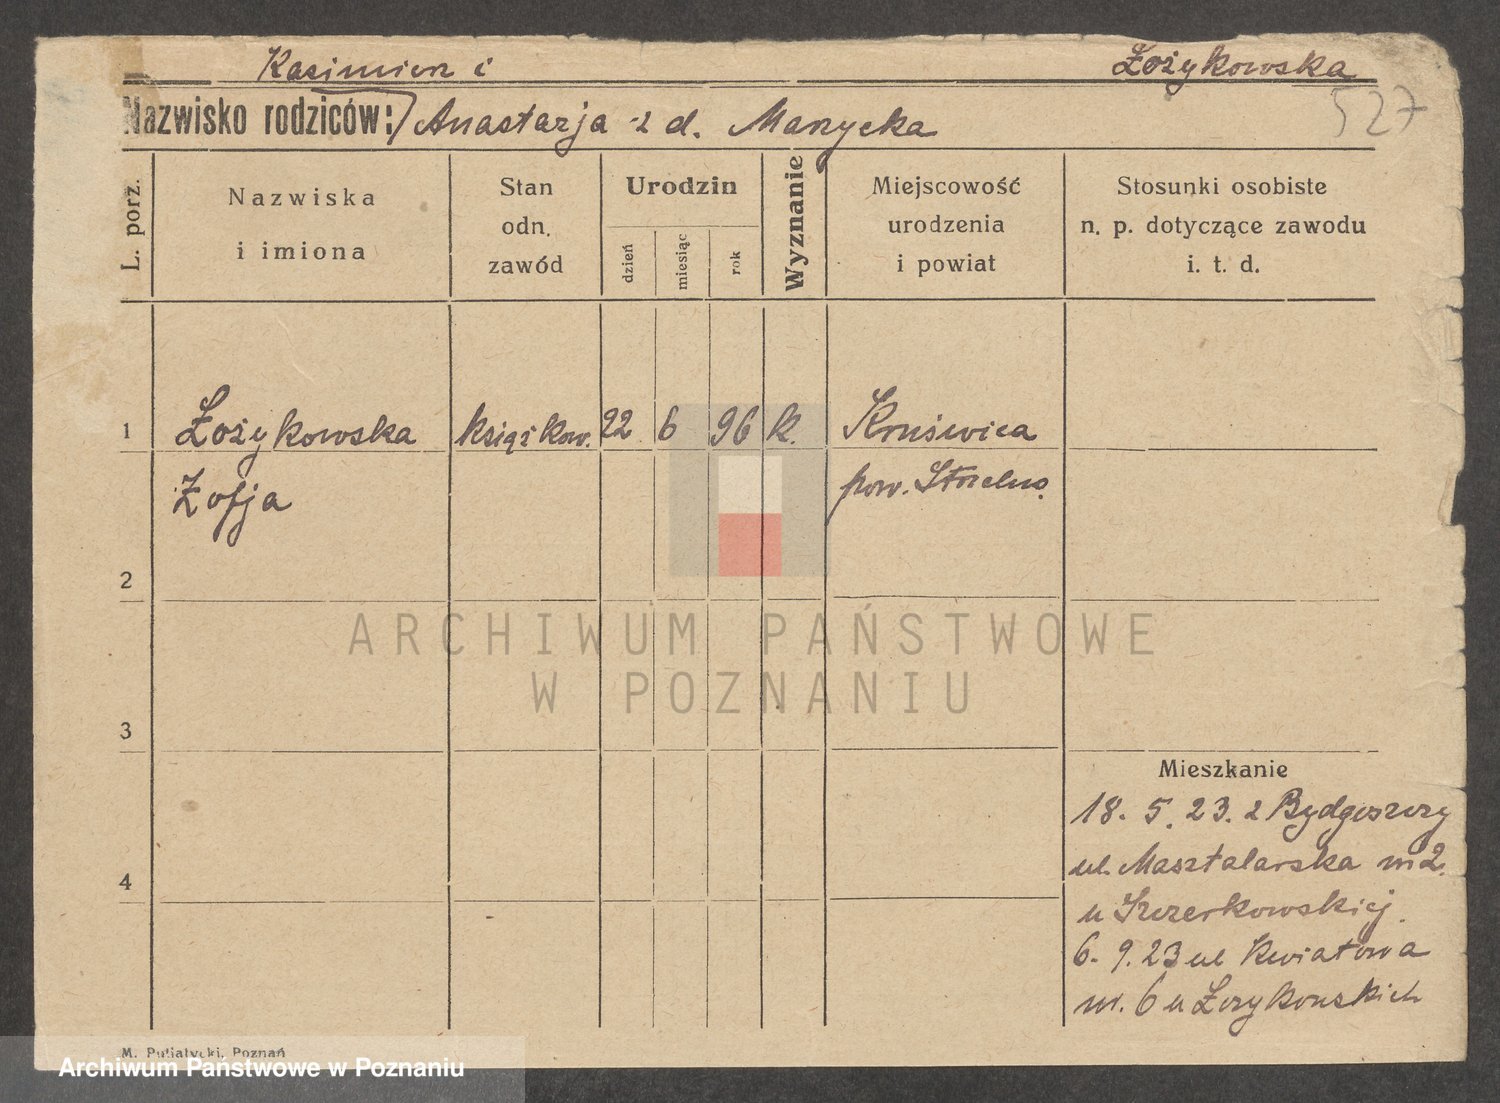 Kasimierz i
Łożykowska
527
Nazwisko rodziców: Anastazja z d. Manycka
L. porz.
Nazwiska
i imiona
Stan
odn.
zawód
Urodzin
dzień
miesiąc
rok
Wyznanie
Miejscowość
urodzenia
i powiat
Stosunki osobiste
n. p. dotyczące zawodu
i. t. d.
1 Łożykowska książkow. 22 6 96 k. Kruświca
Zofja pow. Strzelno.
2
3
4
Mieszkanie
18. 5. 23. z Bydgoszczy
ul. Masztalarska nr 2.
u Szczerkowskiej.
6. 9. 23 ul Kwiatowa
nr. 6 u Łożykowskich
M. Putiatycki, Poznań
ARCHIWUM PAŃSTWOWE
W POZNANIU
Archiwum Państwowe w Poznaniu